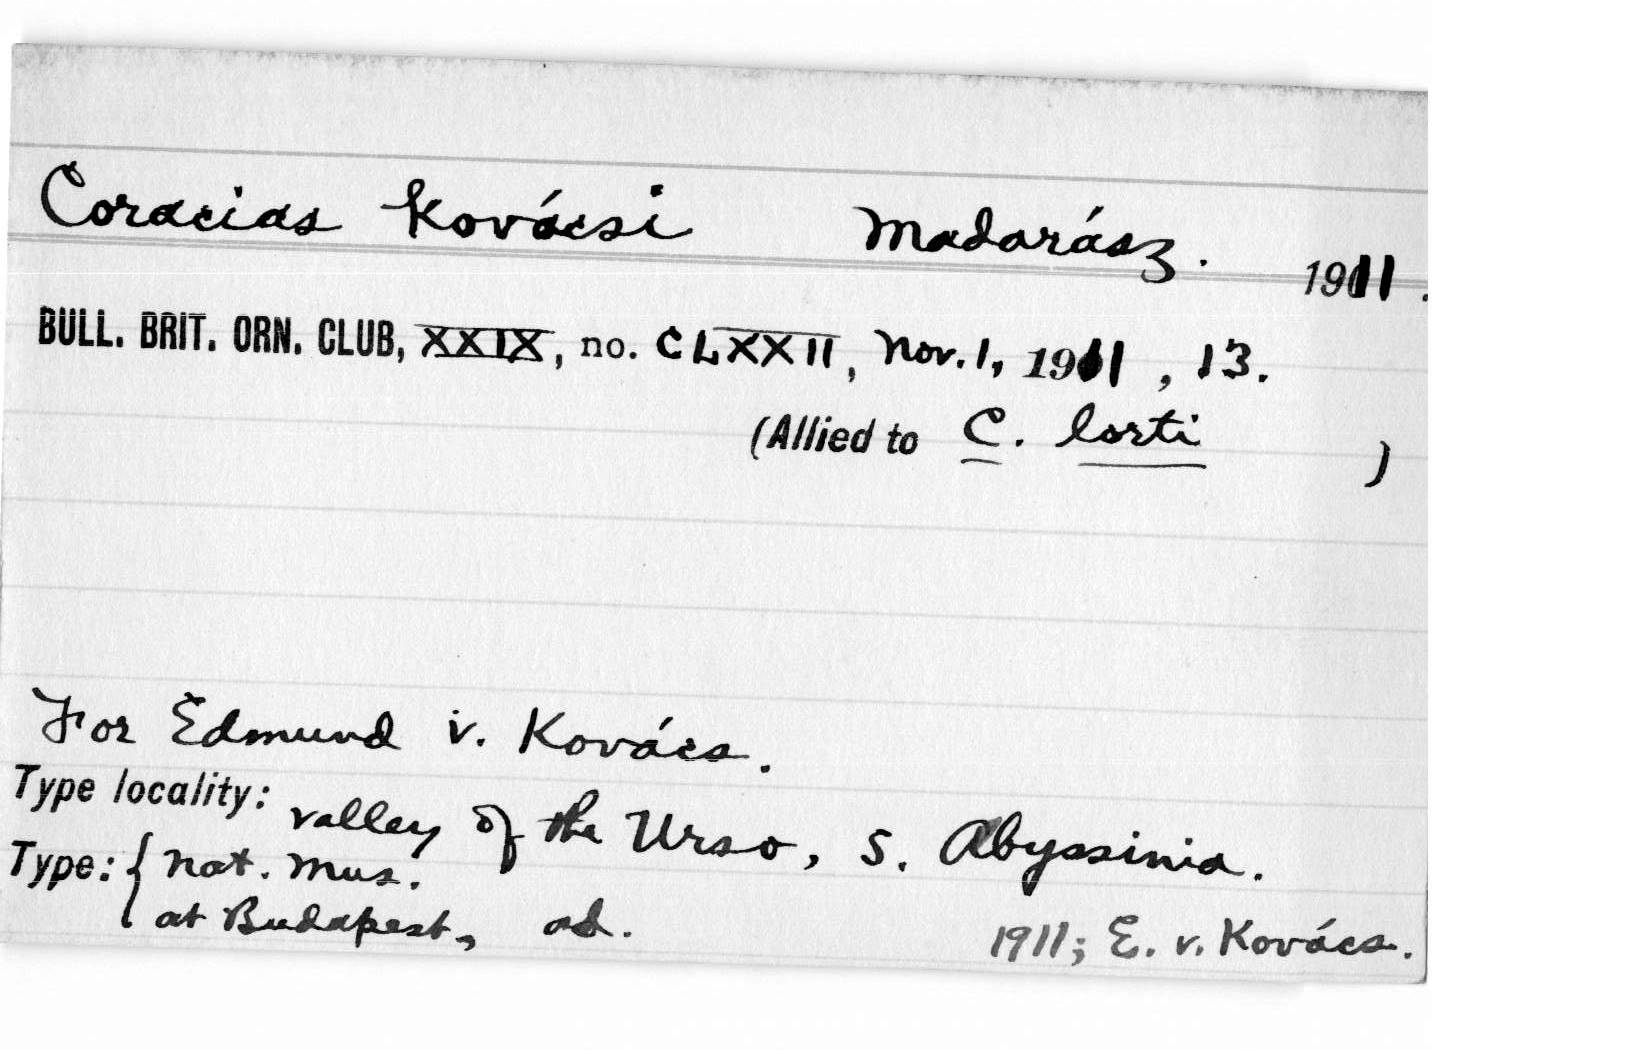 Coracias Kovácsi Madarász. 1911.
BULL. BRIT. ORN. CLUB, XXIX, no. CLXXII, Nov. 1, 1911, 13.
(Allied to C. lorti )
For Edmund v. Kovács.
Type locality: valley of the Urso, S. Abyssinia.
Type: { Nat. Mus.
at Budapest, ad. 1911; E. v. Kovács.